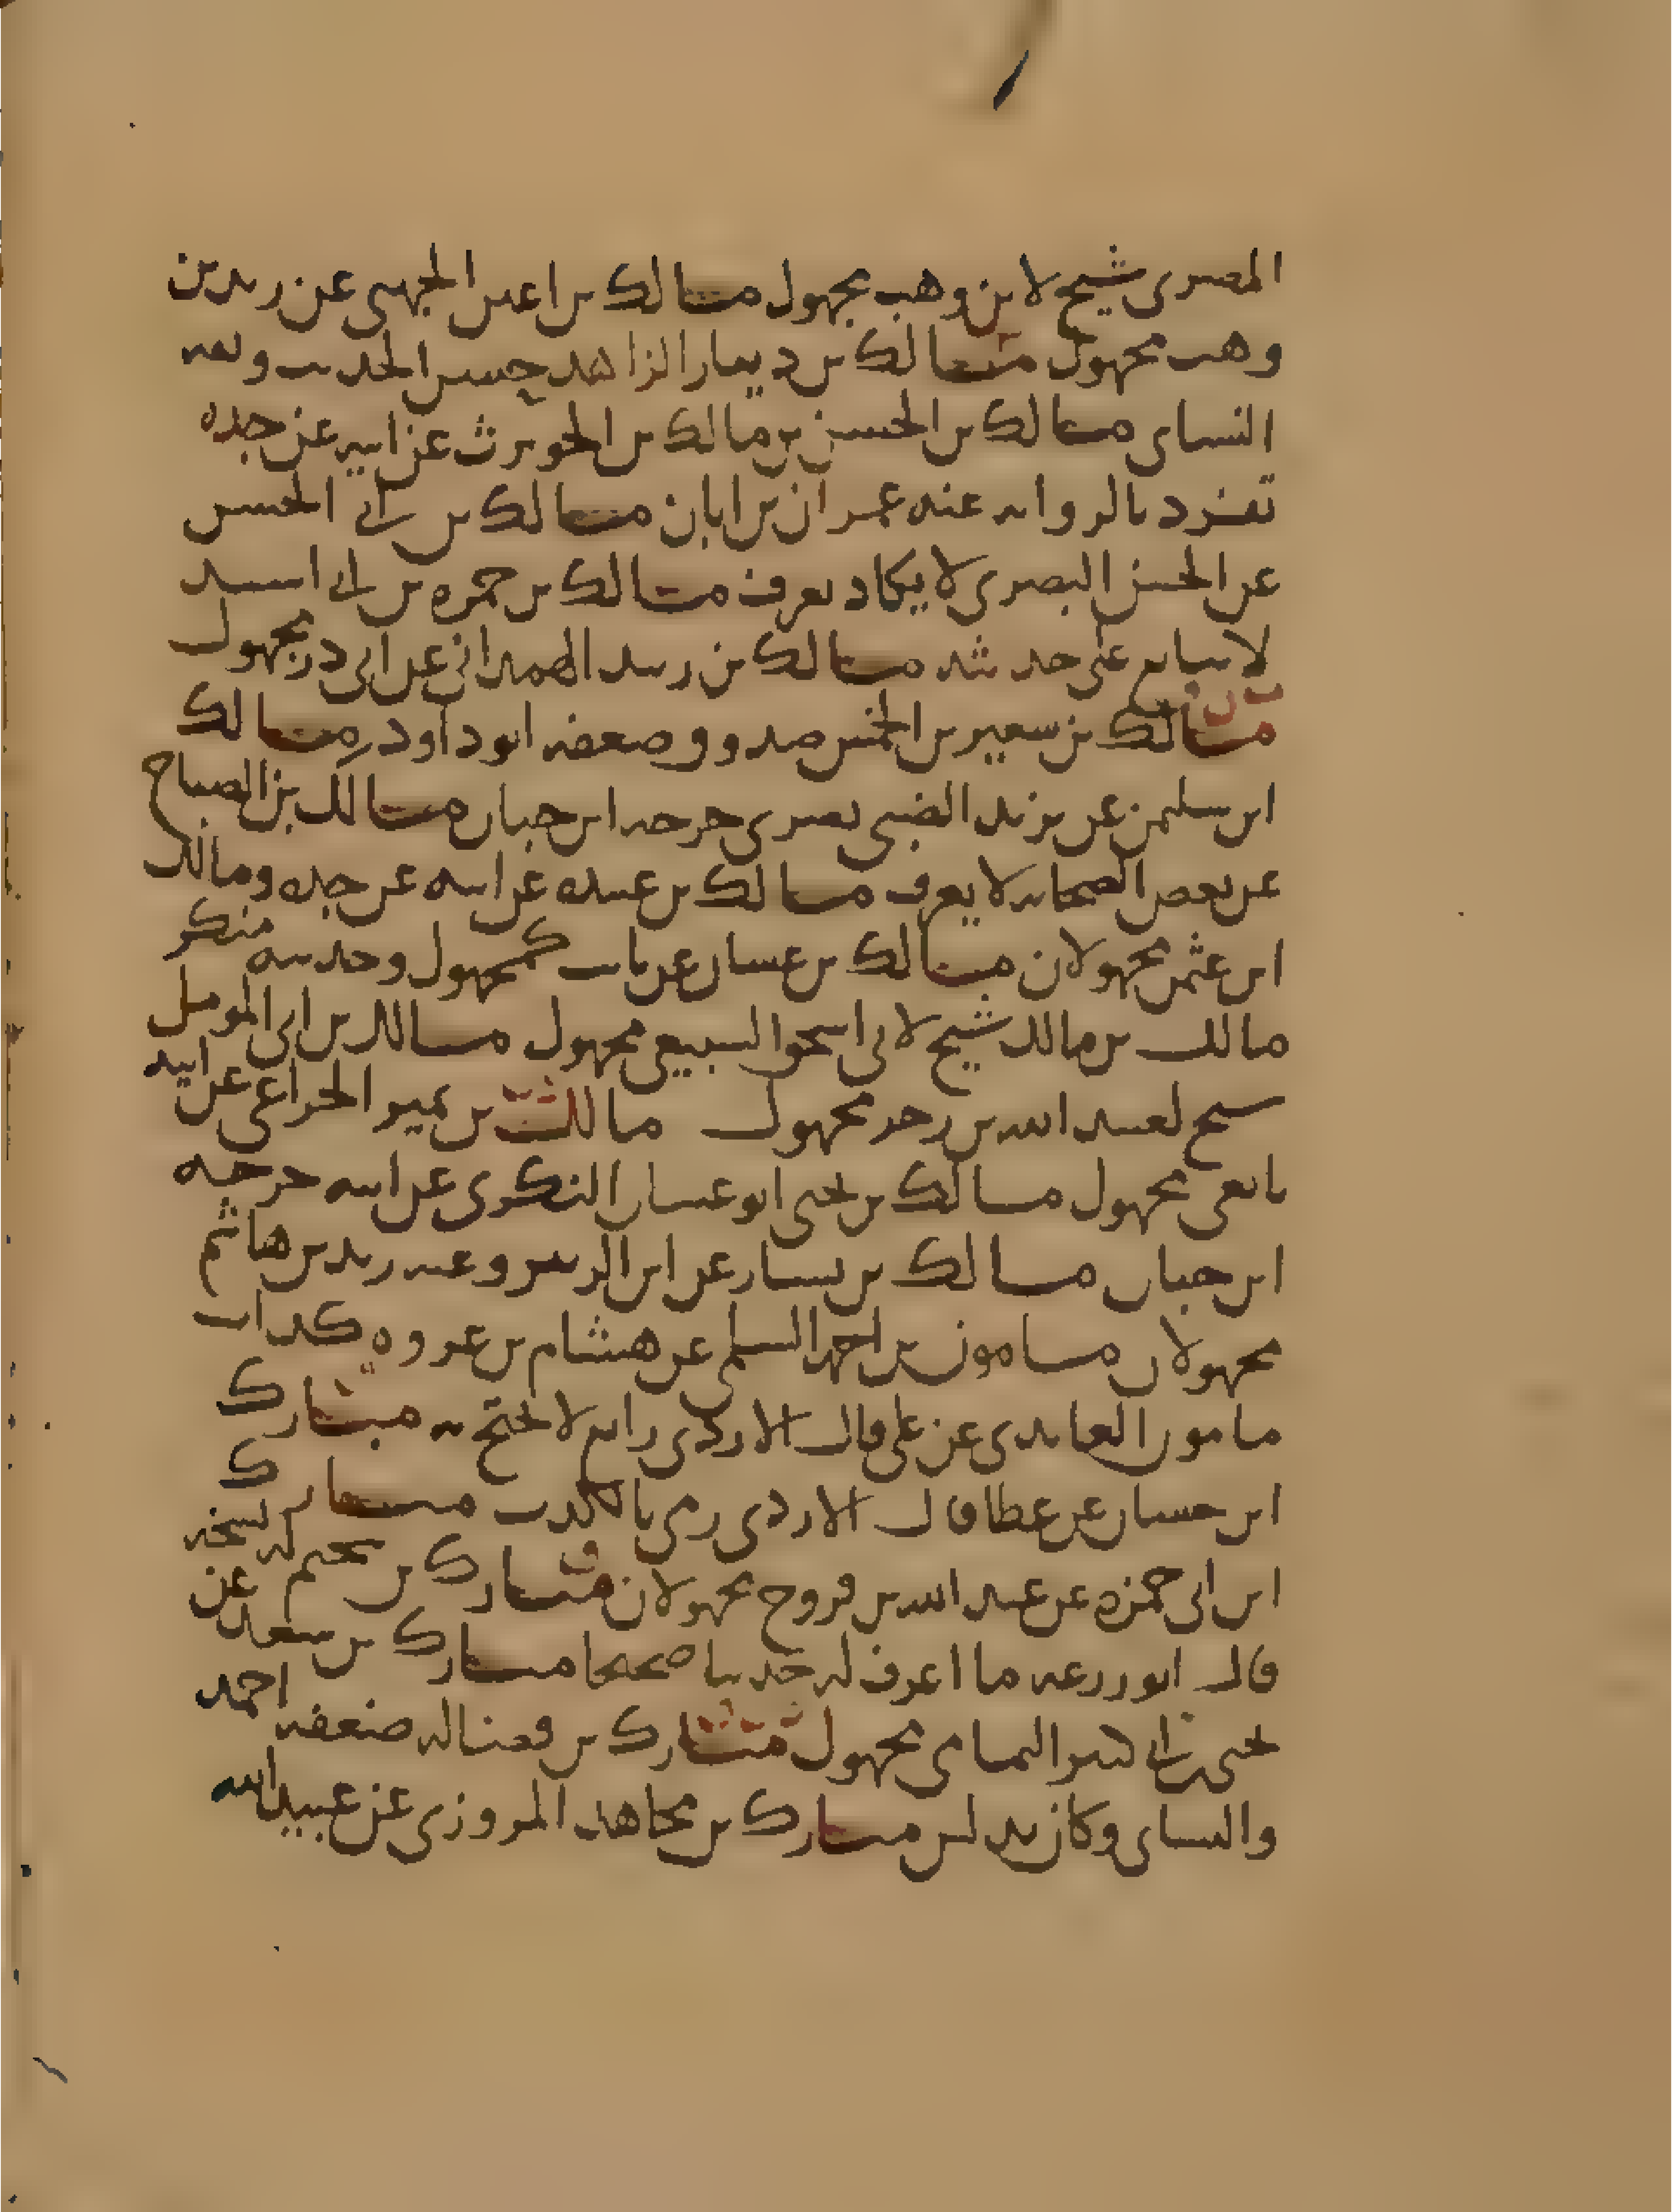 المصرى شيخ لابن وهب مجهول مالك بن اعين الجهنى عن زيد بن
وهب مجهول مالك بن دينار الزاهد حسن الحديث وثقه
النساى مالك بن الحسن بن مالك بن الحويرث عن ابيه عن جده
تفرد بالروايه عنه عمران بن ابان مالك بن ابى الحسن
عن الحسن البصرى لا يكاد يعرف مالك بن حمزه بن ابى اسيد
لا يتابع على حديثه مالك بن زبيد الهمدانى عن ابى ذر مجهول
مالك بن سعير بن الخمس صدوق وضعفه ابو داود مالك
ابن سليمن عن يزيد الضبى بصرى جرحه ابن حبان مالك بن الصباح
عن بعض الصحابه لا يعرف مالك بن عبيده عن ابيه عن جده ومالك
ابن عثمن مجهولان مالك بن غسان عن ثابت كمجهول وحديثه منكر
مالك بن مالك شيخ لابى اسحق السبيعى مجهول مالك بن ابى المومل
شيخ لعبيد الله بن زحر مجهول مالك بن نمير الخزاعى عن ابيه
تابعى مجهول مالك بن يحيى ابو غسان النكرى عن ابيه جرحه
ابن حبان مالك بن يسار عن ابن الزبير وعنه زيد بن هاشم
مجهولان مامون بن احمد السلمى عن هشام بن عروه كذاب
مامون العابدى عن على قال الازدى رايه لا يحتج به مبارك
ابن حسان عن عطا قال الازدى رمى بالكذب مبارك
ابن ابى حمزه عن عبد الله بن فروخ مجهولان مبارك بن سحيم له نسخه
قال ابو زرعه ما اعرف له حديثا صحيحا مبارك بن سعد عن
يحيى بن ابى كثير اليمامى مجهول مبارك بن فضاله ضعفه احمد
والنساى وكان يدلس مبارك بن مجاهد المروزى عن عبيد الله